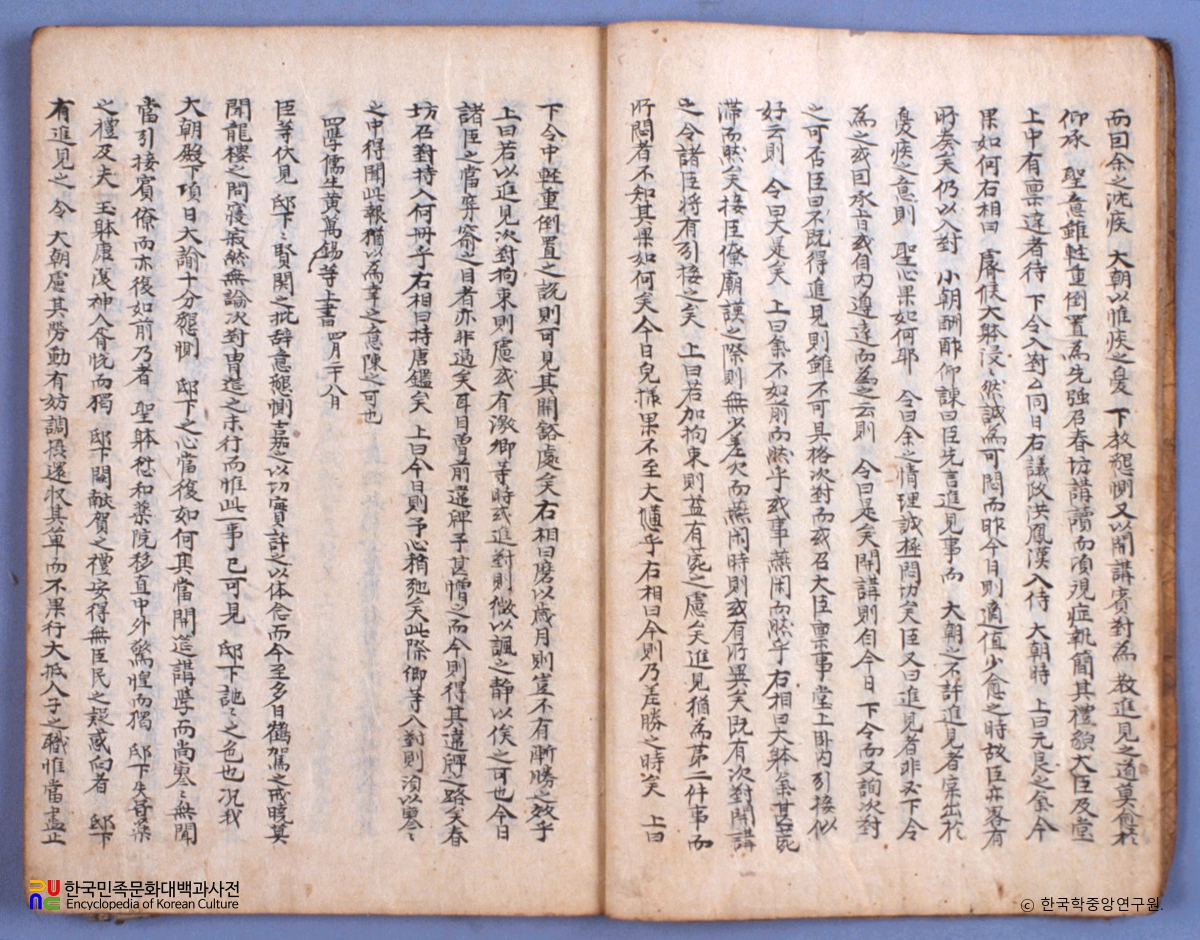 而曰余之沈疾 大朝以惟疾之憂 下敎懇惻又以開講賓對爲 敎進見之道莫愈於
仰承 聖意雖輕重倒置爲先强召春坊講讀而頃現症孰簡其禮貌大臣及堂
上中有稟達者待 下令入對云同日右議政洪鳳漢入侍 大朝時 上曰元良之令今
果如何右相曰 膚候大體浸浸然誠爲可悶而昨今日則適値少愈之時故臣亦畧有
所奏矣仍以入對 小朝酬酢仰諫曰臣先言進見事而 大朝之不許進見者寔出於
憂疾之意則 聖心果如何耶 令曰余之情理誠極悶切矣臣又曰進見者非必下令
爲之或曰承旨或自內遵達而爲之云則 令曰是矣開講則自今日 下令而又詢次對
之可否臣曰不旣得進見則雖不可具格次對而或召大臣稟事堂上卧內引接似
好云則 令曰是矣 上曰氣不如前而然乎或事無閑而然乎右相曰大體氣甚
滯而然矣接臣僚廟謨之際則無少差欠而無閑時則或有所異矣旣有次對開講
之令諸臣將有引接之矣 上曰若加拘束則益有 之慮矣進見猶爲第二件事而
所悶者不知其果如何矣今日兒㨾果不至大憊乎右相曰今則乃差勝之時矣 上曰
下令中輕重倒置之說則可見其開豁處矣右相曰磨以歲月則豈不有漸勝之效乎
上曰若以進見次對拘束則慮或有激卿等時或進對則微以諷之靜以俟之可也今日
諸臣之當穿窬之目者亦非過矣耳目曾前還 予甚憎之而今則得其違 一路矣春
坊召對持入何冊乎右相曰持唐鑑矣 上曰今日則予心稍弛矣此際卿等入對則須以寥寥
之中得聞此報猶以爲幸之意陳之可也
四學儒生黃萬錫等上書 四月二十八月
臣等伏見 邸下下賢關之批辭意懇惻 之以切實許之以体念而今至多日鶴駕之戒曉莫
聞龍樓之問寢寂然無論次對冑筵之未行而惟此一事已可見 邸下訑訑之色也况我
大朝殿下頃日大諭十分懇惻 邸下之心當復如何其當開筵講學而尚寥寥無聞
當引接賓僚而亦復如前乃者 聖體愆和藥院移直中外驚惶而獨 邸下失 藥
之禮及夫 玉體康復神人胥悅而獨 邸下闕獻賀之禮安得無臣民之疑惑向者 邸下
有進見之 令 大朝慮其勞動有妨調攝還收其 而不果行大抵人子之職惟當盡止
한국민족문화대백과사전
Encyclopedia of Korean Culture
ⓒ 한국학중앙연구원.